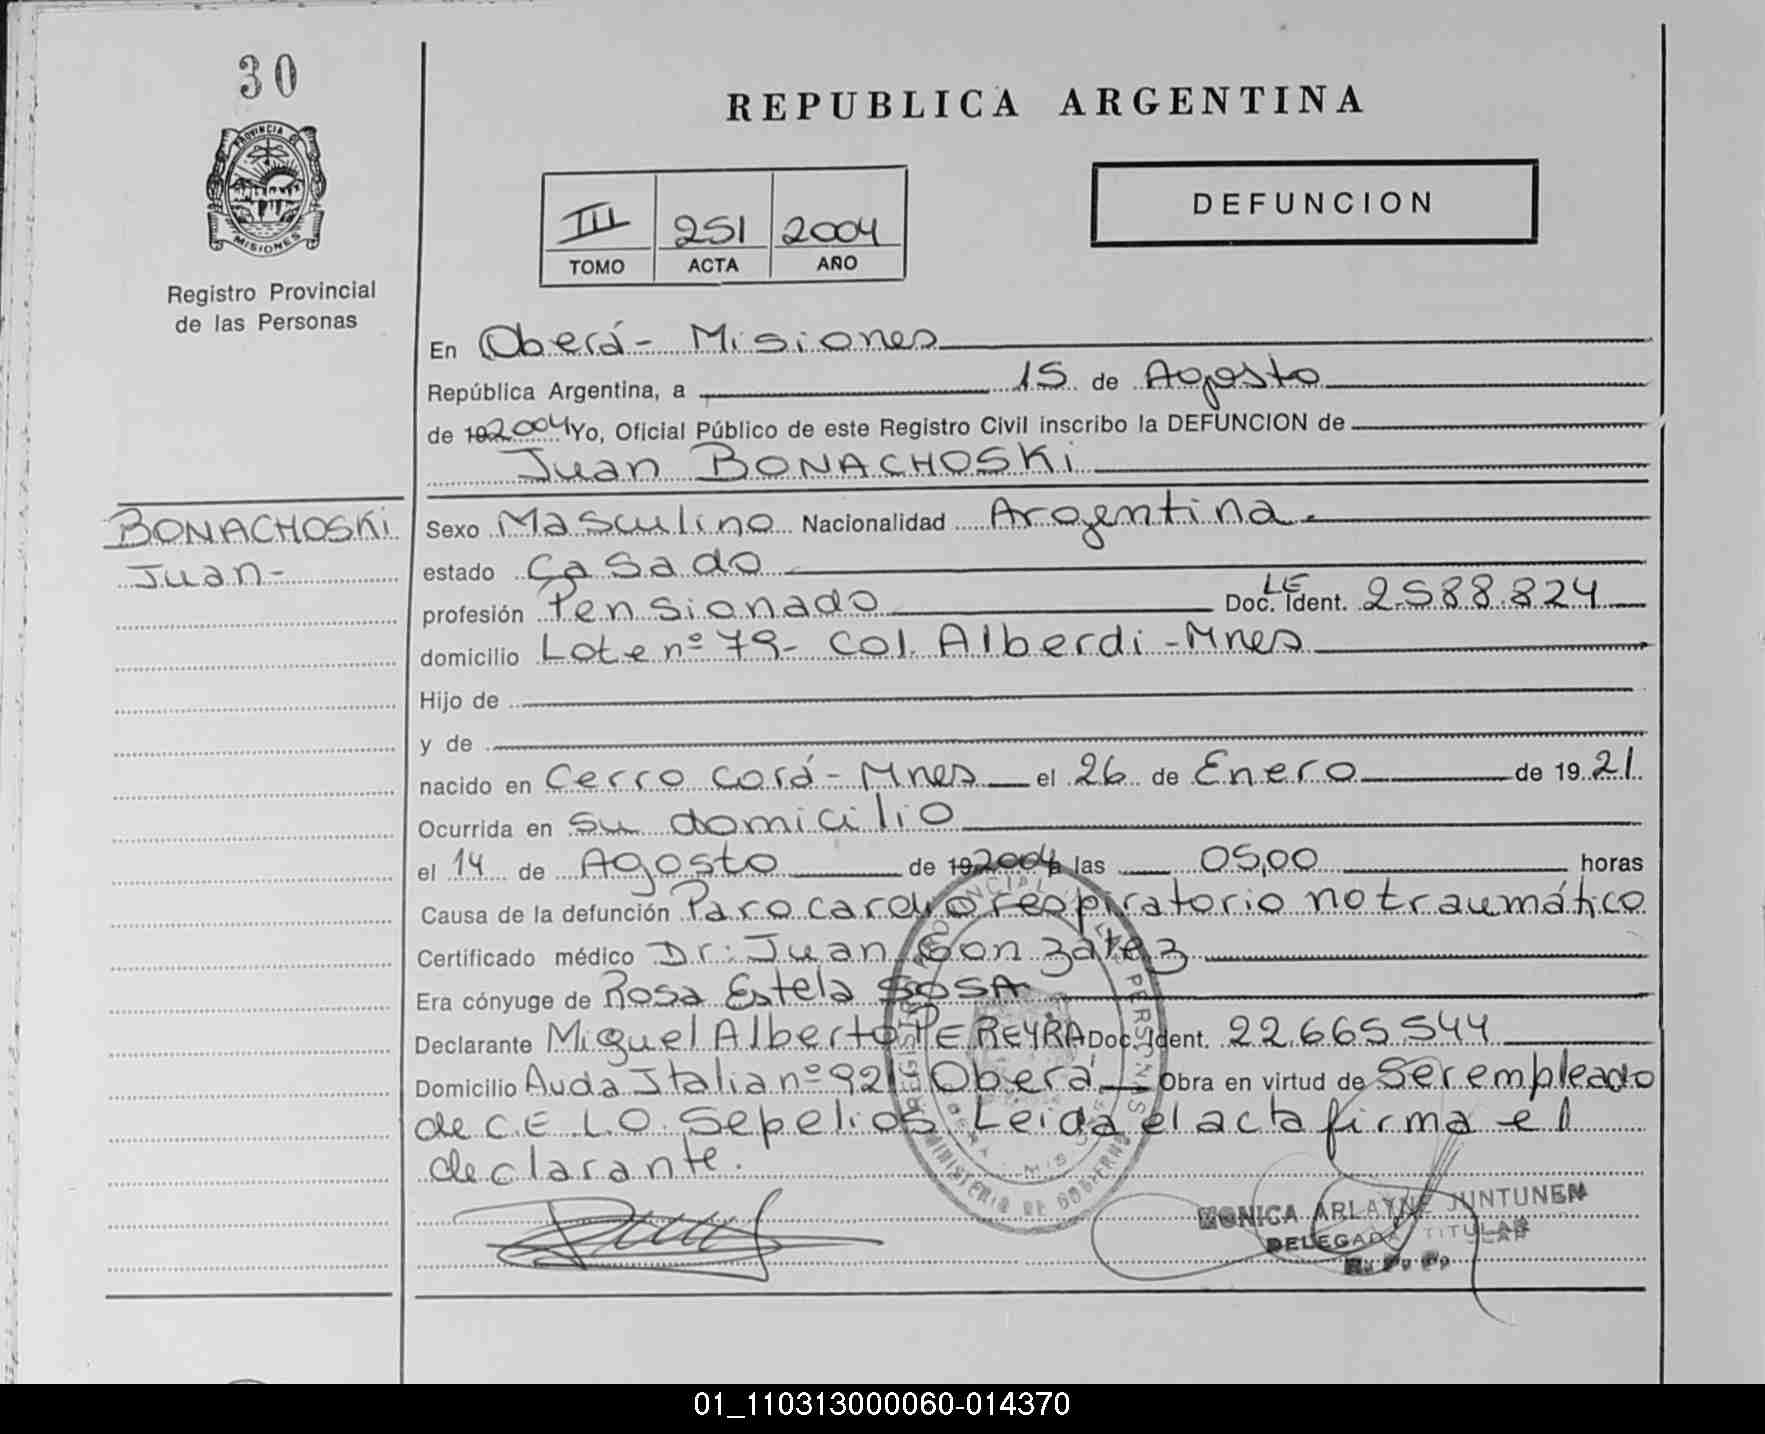 30
PROVINCIA DE
MISIONES
Registro Provincial
de las Personas
REPUBLICA ARGENTINA
III 251 2004
TOMO ACTA AÑO
DEFUNCION
En Oberá - Misiones
República Argentina, a 15 de Agosto
de 192004 Yo, Oficial Público de este Registro Civil inscribo la DEFUNCION de
Juan BONACHOSKi
BONACHOSKi
Juan-
Sexo Masculino Nacionalidad Argentina.
estado Casado
profesión Pensionado Doc. Ident. LE 2588.824
domicilio Lote nº 79- Col. Alberdi - Mnes
Hijo de
y de
nacido en Cerro Corá - Mnes el 26 de Enero de 1921
Ocurrida en su domicilio
el 14 de Agosto de 192004 a las 05,00 horas
Causa de la defunción Paro cardiorespiratorio no traumático
Certificado médico Dr: Juan Gonzalez
Era cónyuge de Rosa Estela SOSA
Declarante Miguel Alberto PEREYRA Doc. Ident. 22.665.544
Domicilio Avda Italia nº 921 Oberá Obra en virtud de Ser empleado
de C.E.L.O. Sepelios. Leida el acta firma el
declarante.
MINISTERIO DE GOBIERNO
MONICA ARLAYNE JUNTUNEN
DELEGADA TITULAR
01_110313000060-014370